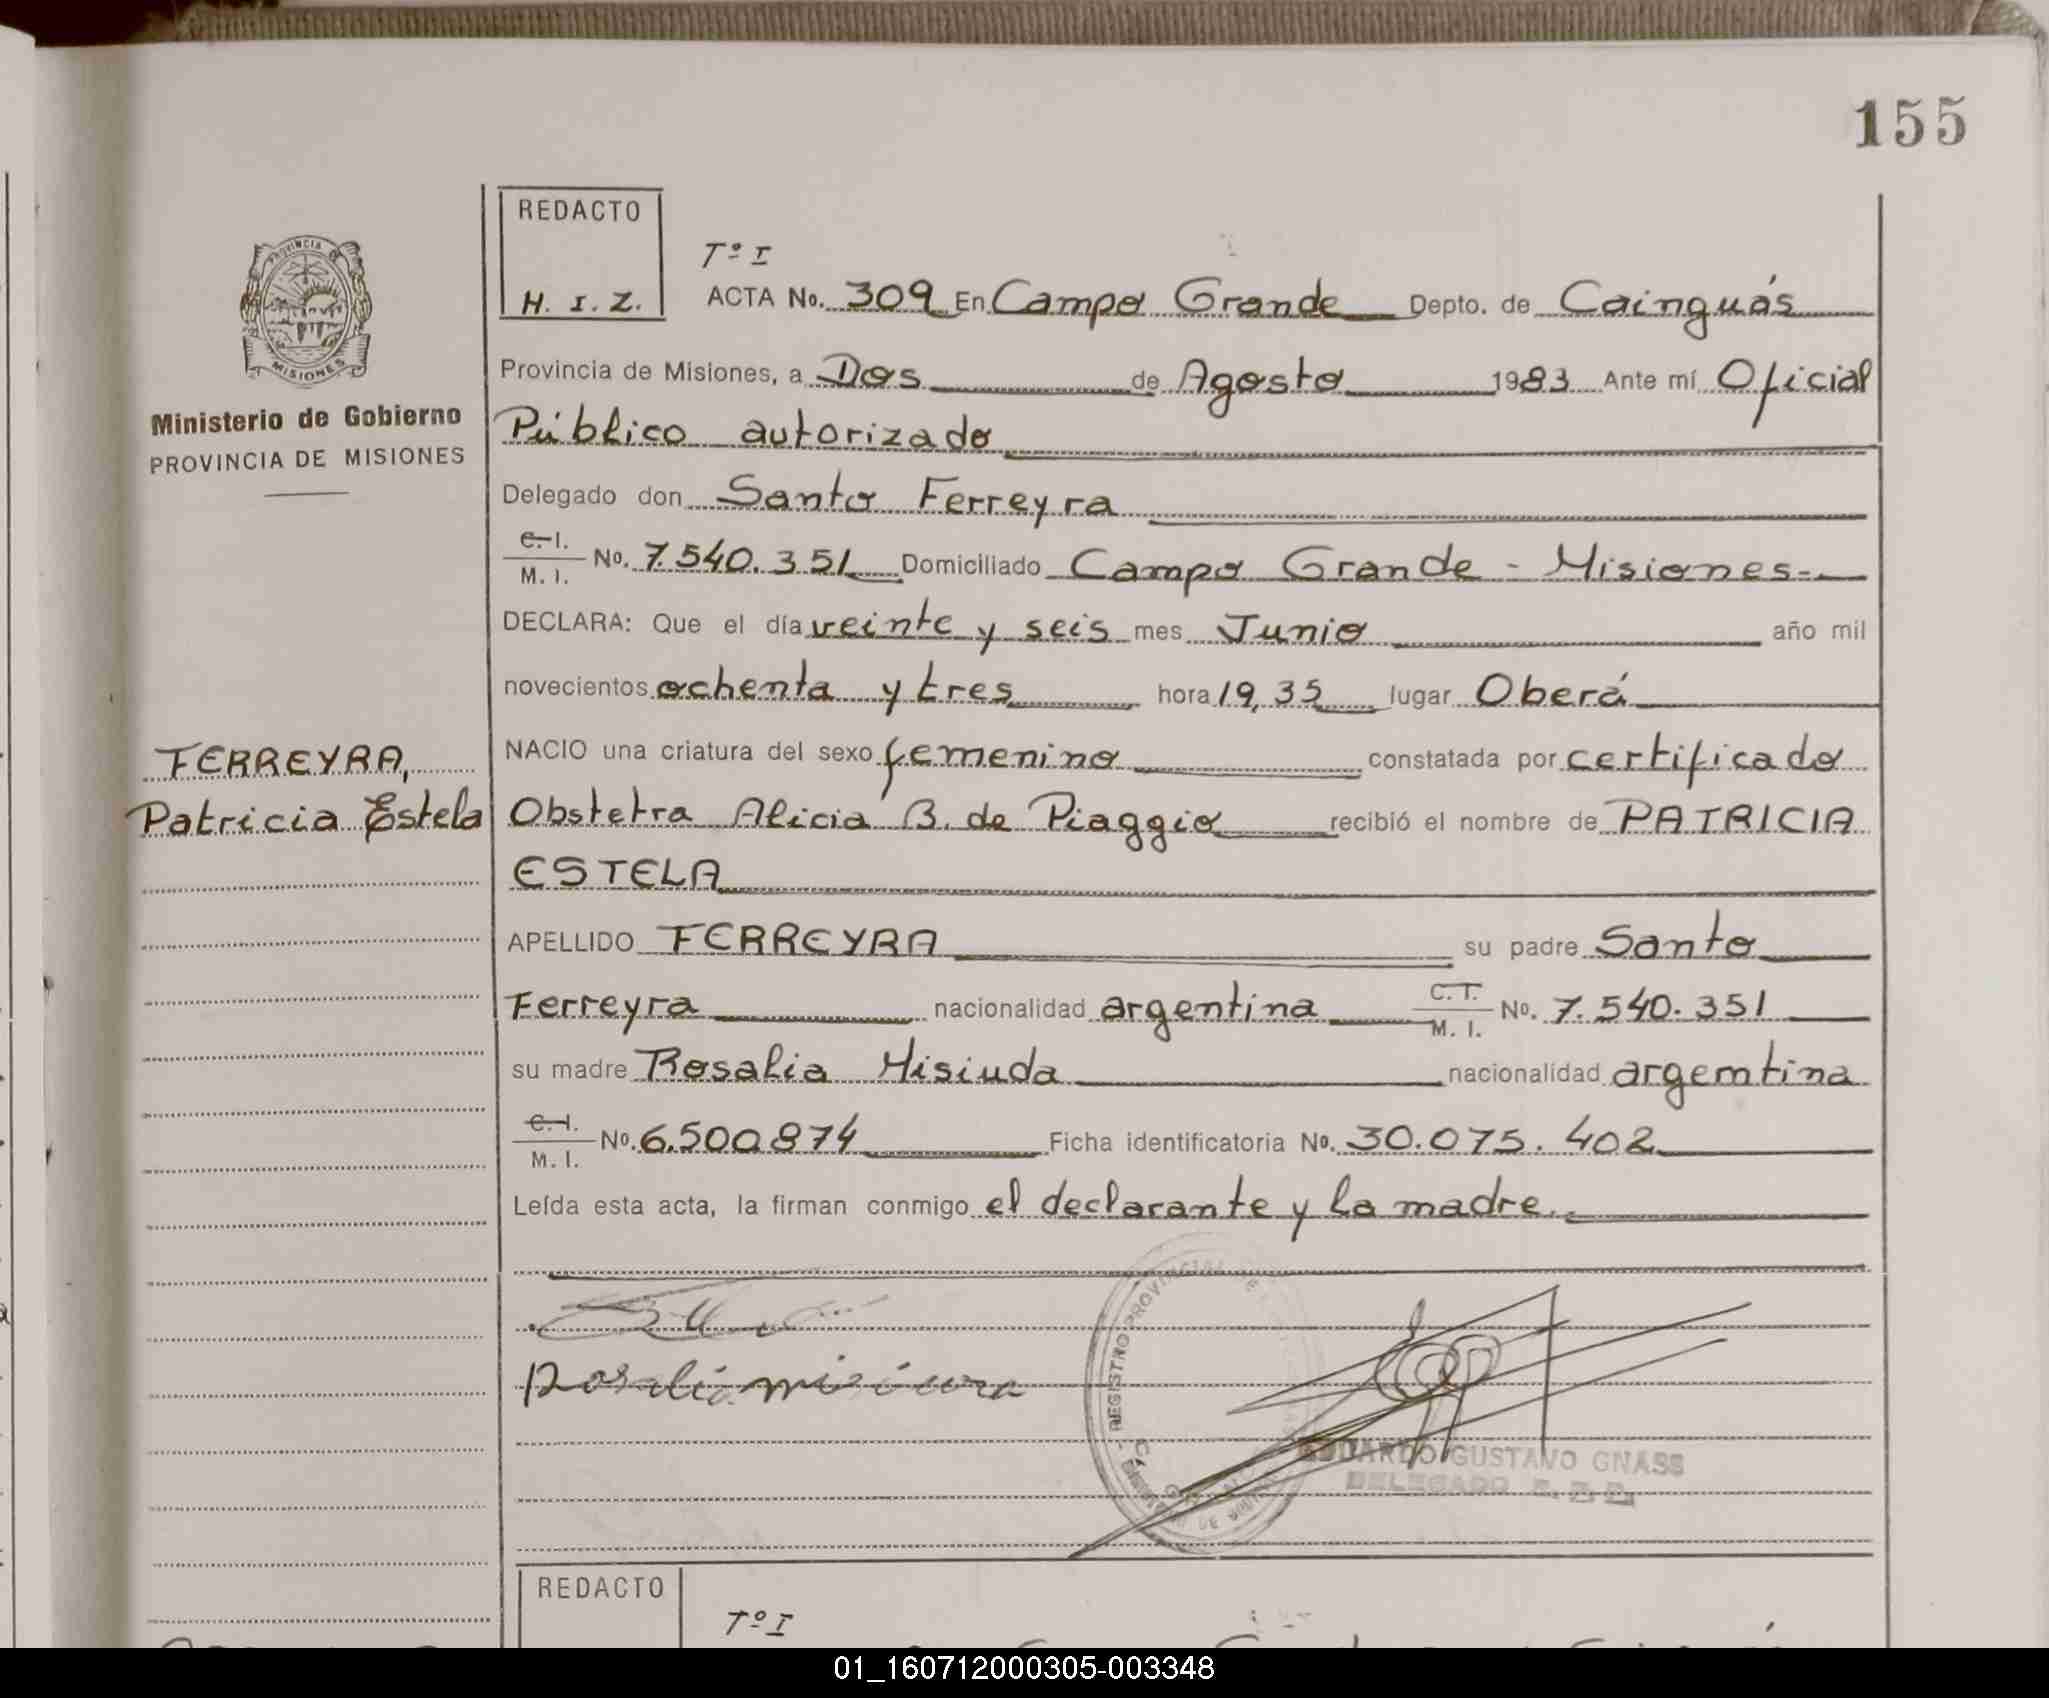 155
REDACTO
H. I. Z.
Tº I
ACTA No. 309 En Campo Grande Depto. de Cainguás
Provincia de Misiones, a Dos de Agosto 1983 Ante mí Oficial
Público autorizado
Delegado don Santo Ferreyra
C. I.
M. I. No. 7.540.351 Domiciliado Campo Grande - Misiones-
DECLARA: Que el día veinte y seis mes Junio año mil
novecientos ochenta y tres hora 19,35 lugar Oberá
NACIO una criatura del sexo femenino constatada por certificado
Obstetra Alicia B. de Piaggio recibió el nombre de PATRICIA
ESTELA
APELLIDO FERREYRA su padre Santo
Ferreyra nacionalidad argentina C. I. M. I. No. 7.540.351
su madre Rosalia Misiuda nacionalidad argemtina
C. I.
M. I. No. 6.500.874 Ficha identificatoria No. 30.075.402
Leída esta acta, la firman conmigo el declarante y la madre.
PROVINCIA
MISIONES
Ministerio de Gobierno
PROVINCIA DE MISIONES
FERREYRA,
Patricia Estela
REGISTRO PROVINCIAL DE
EDUARDO GUSTAVO GNASS
DELEGADO R. P. P.
REDACTO
Tº I
01_160712000305-003348